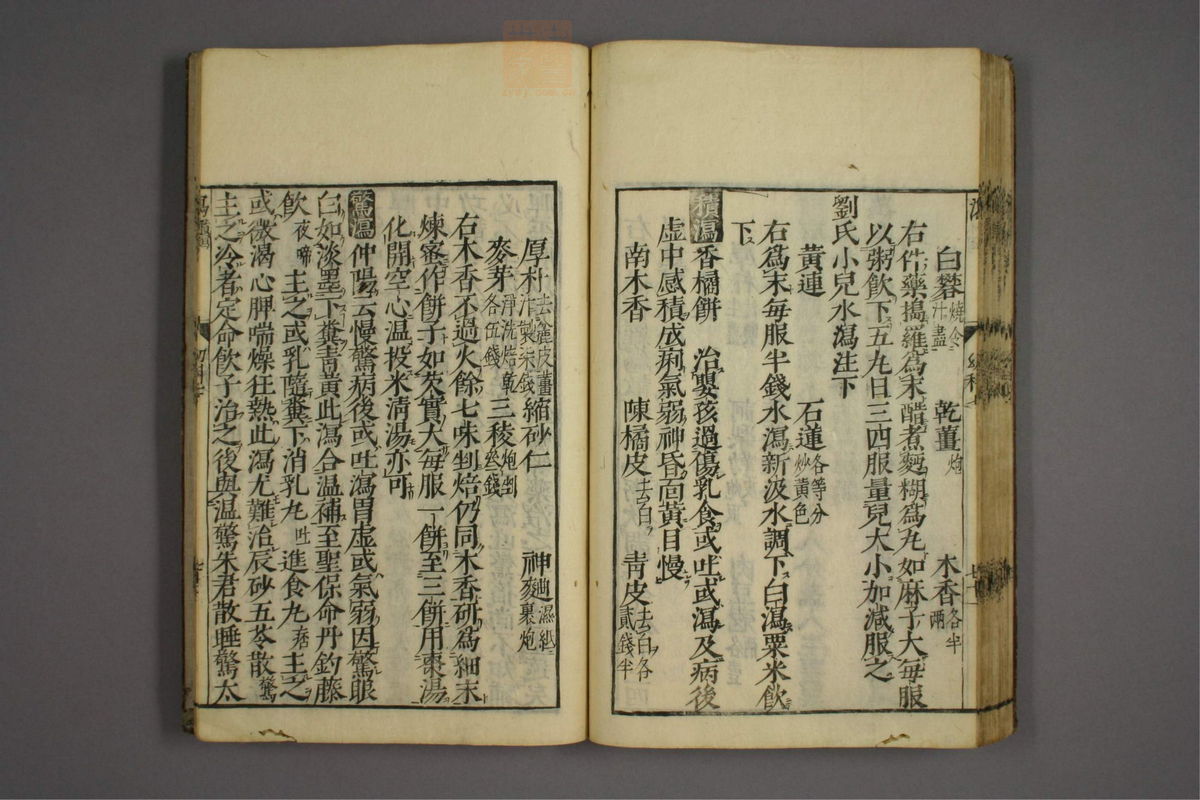 白礬燒令汁盡 乾薑炮 木香各半兩
右件藥搗羅爲末醋煮麵糊爲丸如麻子大每服
以粥飲下五丸日三四服量兒大小加減服之
劉氏小兒水瀉注下
黃連 石蓮各等分炒黃色
右爲末每服半錢水瀉新汲水調下白瀉粟米飲
下
積瀉香橘餅 治嬰孩過傷乳食或吐或瀉及病後
虛中感積成痢氣弱神昏面黃目慢
南木香 陳橘皮去白 青皮去白各貳錢半
厚朴去麄皮薑汁製柒錢 縮砂仁 神麯濕紙裹炮
麥芽淨洗焙乾各伍錢 三稜炮剉叁錢
右木香不過火餘七味剉焙仍同木香研爲細末
煉蜜作餅子如芡實大每服一餅至三餅用棗湯
化開空心溫投米清湯亦可
驚瀉仲陽云慢驚病後或吐瀉胃虛或氣弱因驚眼
白如淡墨下糞青黃此瀉合溫補至聖保命丹鈎藤
飲夜啼主之或乳隨糞下消乳丸吐進食丸痞主之
或微渴心脾喘燥狂熱此瀉尤難治辰砂五苓散驚
主之冷者定命飲子治之後與溫驚朱君散睡驚太